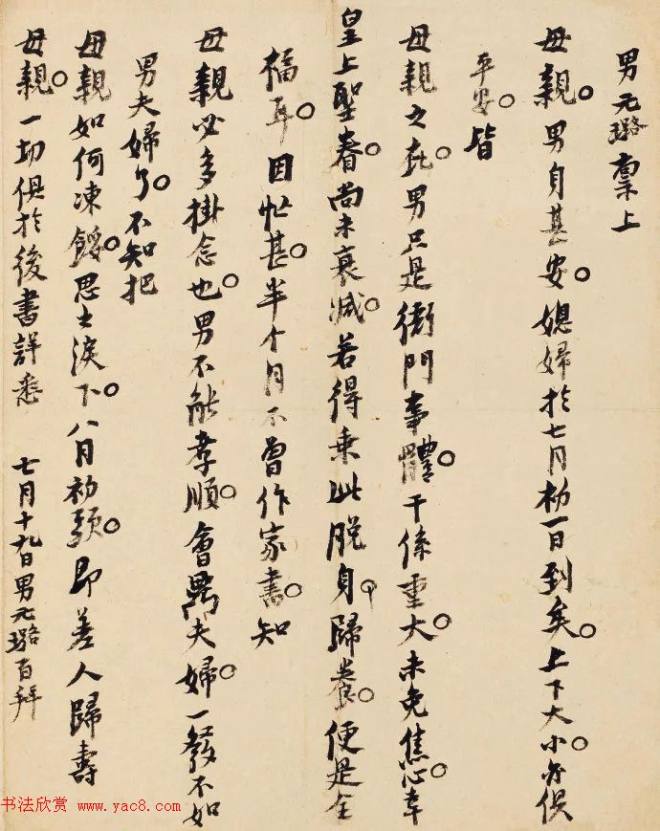 男元璐稟上
母親。男自甚安。媳婦於七月初一日到矣。上下大小亦俱
平安。皆
母親之庇。男只是衙門事體。干係重大。未免焦心。幸
皇上聖眷。尚未衰減。若得乘此脫身。歸養。便是全
福耳。因忙甚。半个月不曾作家書。知
母親必多掛念也。男不能孝順。會鼎夫婦。一發不如
男夫婦了。不知把
母親如何凍餒。思之淚下。八月初頭。即差人歸壽
母親。一切俱於後書詳悉 七月十九日男元璐百拜
书法欣赏 www.yac8.com